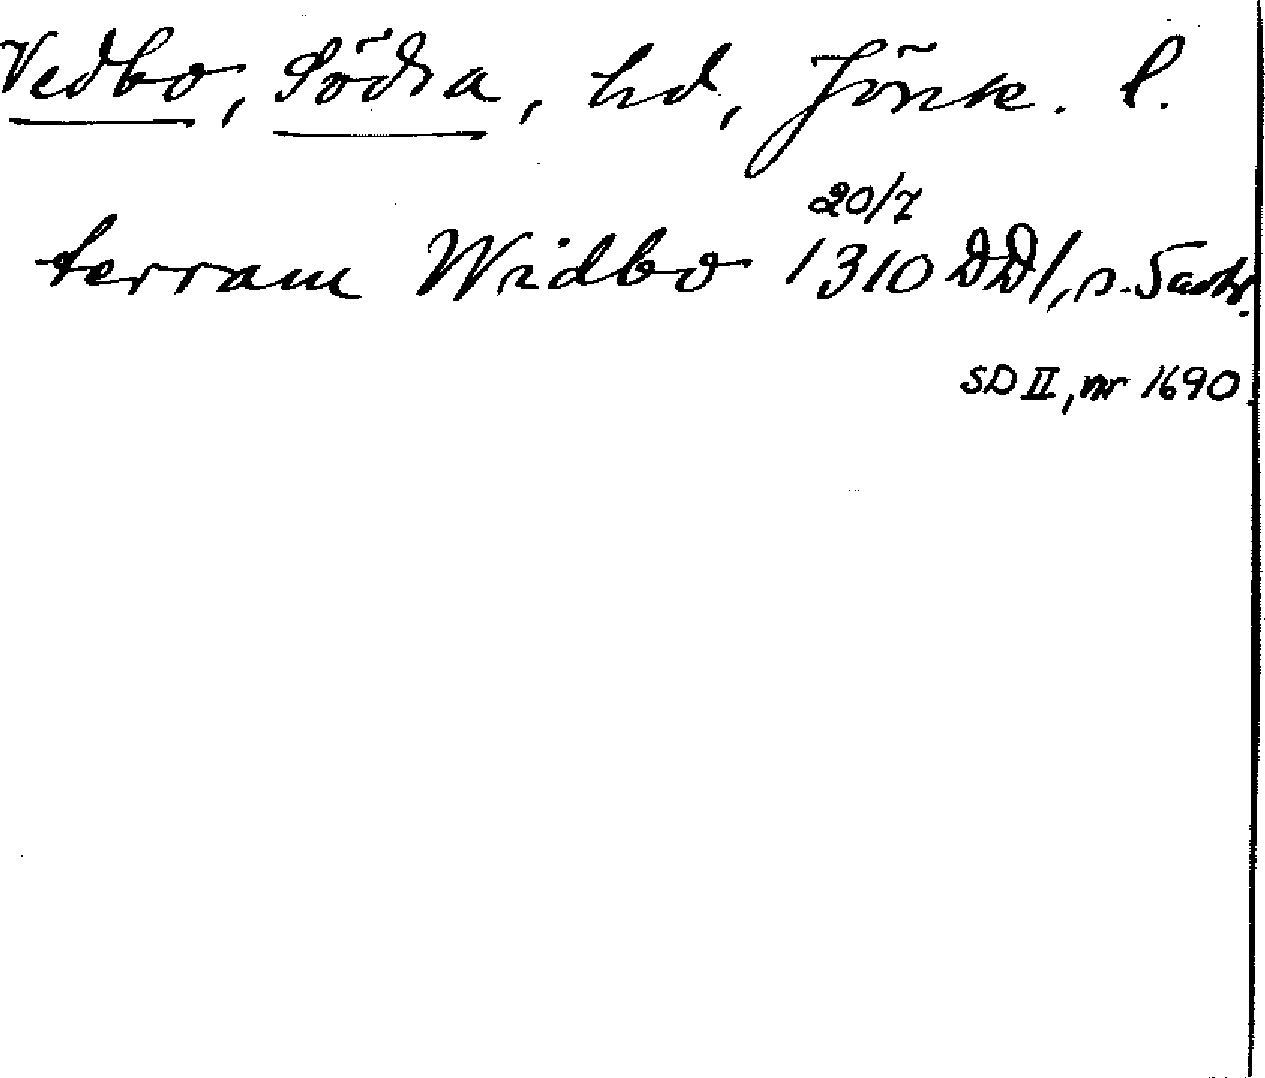 Vedbo, Södra, hd, Jönk. l.
20/7
terram Widbo 1310 DD1, s.
SD II, nr 1690.